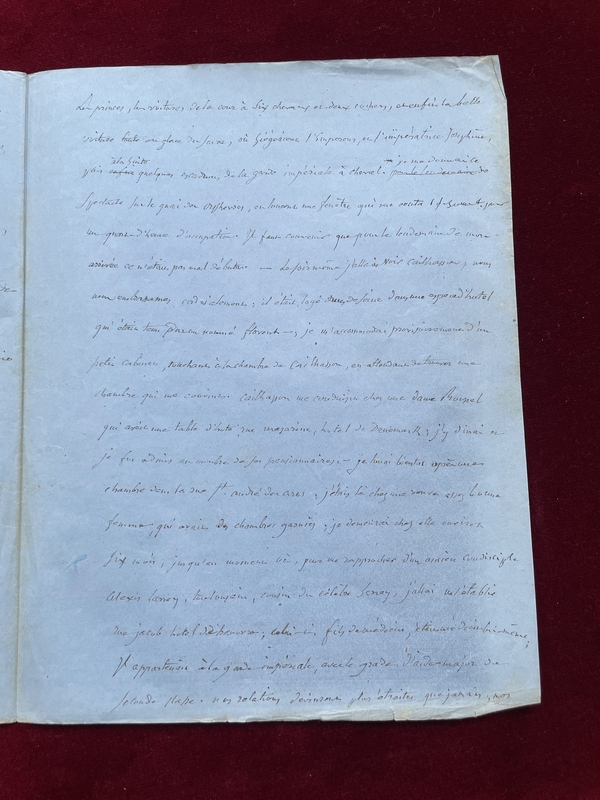 Les princes, les voitures de la cour à six chevaux et deux cochers, et enfin la belle
voiture toute en glace du sacre, où siégeaient l'empereur, et l'impératrice Joséphine,
à la suite
puis quelques escadrons de la garde impériale à cheval. je me donnai ce
spectacle sur le quai des orphèvres, en louant une fenêtre qui me couta pour
un quart d'heure d'occupation. Il faut convenir que pour le lendemain de mon
arrivée ce n'était pas mal débuter — Le soir même j'allai voir Cailhasson, nous
nous embrassames cordialement; il était logé rue de Seine dans une espèce d'hotel
qui était tenu par un nommé florent —, je m'accommodai provisoirement d'un
petit cabinet, touchant à la chambre de Cailhasson, en attendant de trouver une
chambre qui me convint. Cailhasson me conduisit chez une dame
qui avait une table d'hôte rue mazarine, hotel de Denemark; j'y dinai et
je fus admis au nombre de ses pensionnaires. — je louai bientôt après une
chambre dans la rue St. andré des arcs; j'étais là chez une veuve assez bonne
femme, qui avait des chambres garnies; je demeurai chez elle environ
six mois, jusqu'au moment où, pour me rapprocher d'un ancien condisciple
Alexis Larrey, toulousain, cousin du célèbre Larrey, j'allai m'établir
rue jacob hotel d'hanovre; celui-ci, fils de médecin, était médecin lui-même,
il appartenait à la garde impériale, avec le grade d'aide-major de
seconde classe. nos relations devinrent plus étroites que jamais, nos